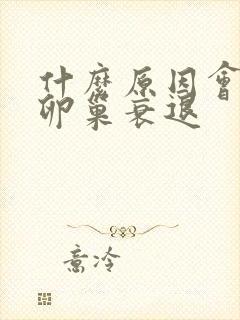 什麽原因會
卵巢衰退
意冷